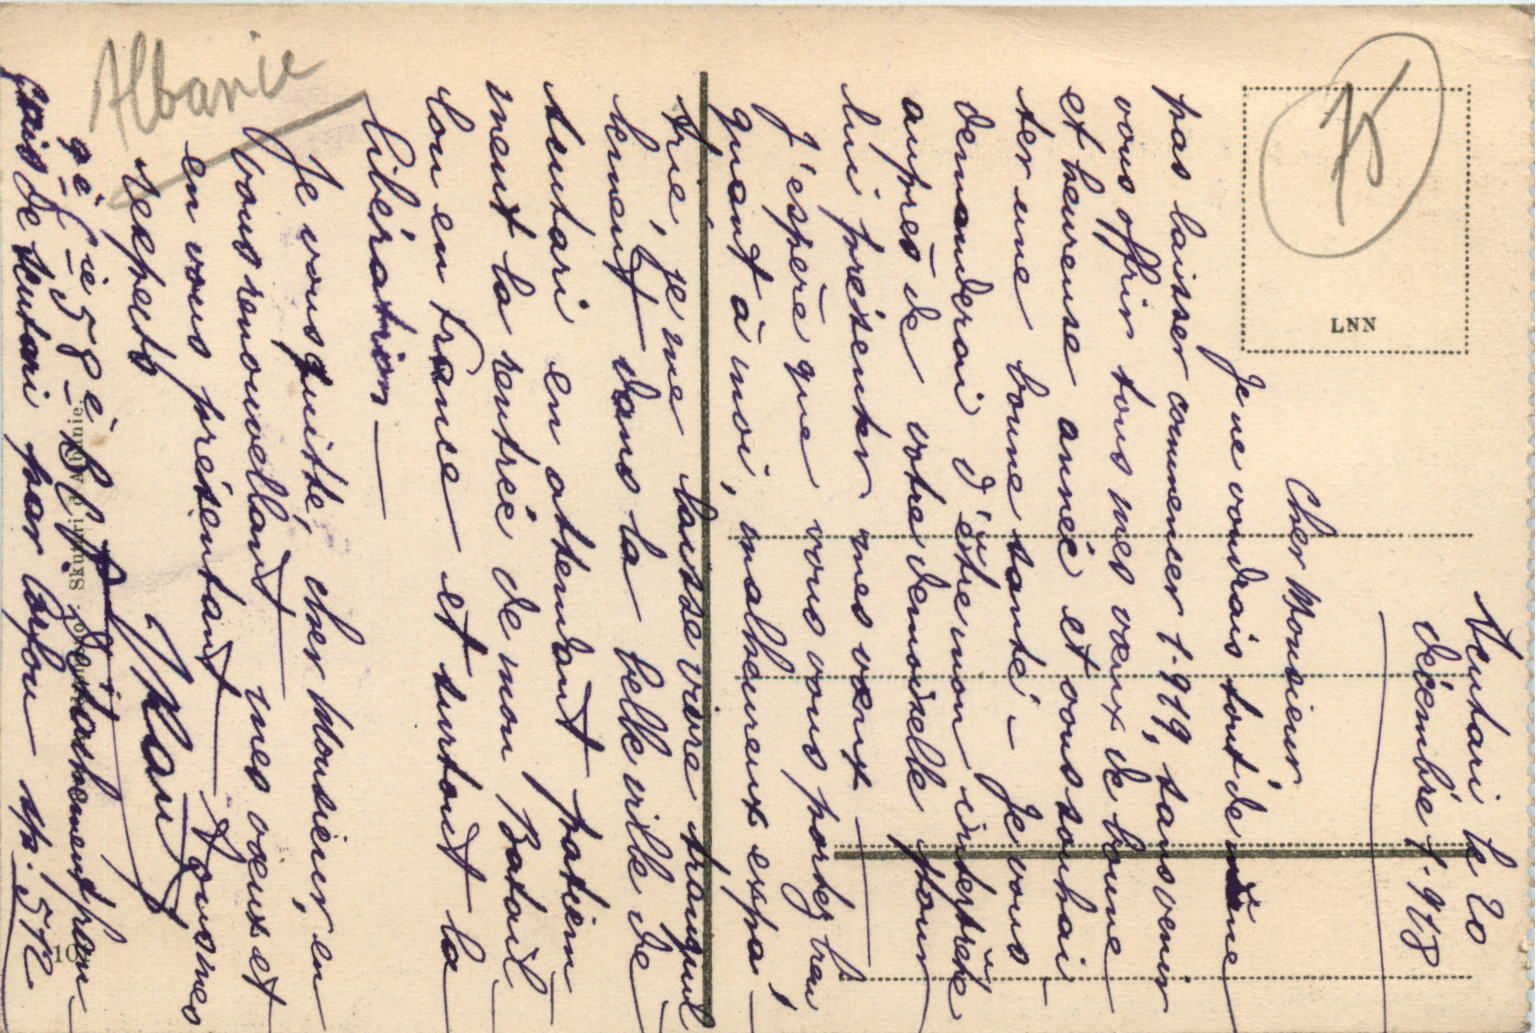 Albanie
75
LNN
Scutari le 20
décembre 1.918
Cher Monsieur
Je ne voudrais tout de même
pas laisser commencer 1.919, sans venir
vous offrir tous mes vœux de bonne
et heureuse année et vous souhai
ter une bonne santé - Je vous
demanderai d'être mon interprète
auprès de votre demoiselle pour
lui présenter mes vœux
J'espère que vous vous portez bien
quant à moi, malheureux expa-
trié, je me laisse vivre tranquil
lement dans la belle ville de
Scutari en attendant patiem
ment la rentrée de mon Batail
lon en France et surtout la
libération
Je vous quitte, cher Monsieur, en
vous renouvellant mes vœux et
en vous présentant tous mes
respects
9è Cie 58è
Détachement fran
çais de Scutari par Corfou sp. 512
Skutari d'Albanie.
10